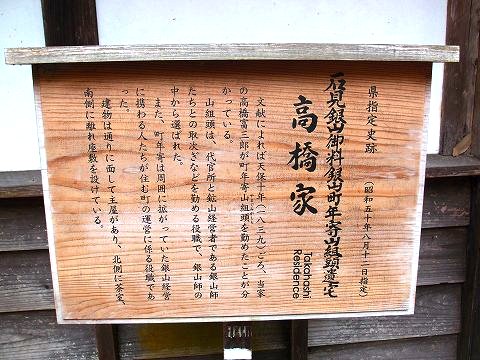 県指定史跡
(昭和五十年八月十一日指定)
石見銀山御料銀山町年寄山組頭遺宅
高橋家
Takahashi
Residence
文献によれば天保十年(一八三九)ごろ、当家
の高橋富三郎が町年寄山組頭を勤めたことが分
かっている。
山組頭は、代官所と鉱山経営者である銀山師
たちとの取次ぎなどを勤める役職で、銀山師の
中から選ばれた。
また、町年寄は周囲に拡がっていた銀山経営
に携わる人たちが住む町の運営に係る役職であ
った。
建物は通りに面して主屋があり、北側に茶室、
南側に離れ座敷を設けている。